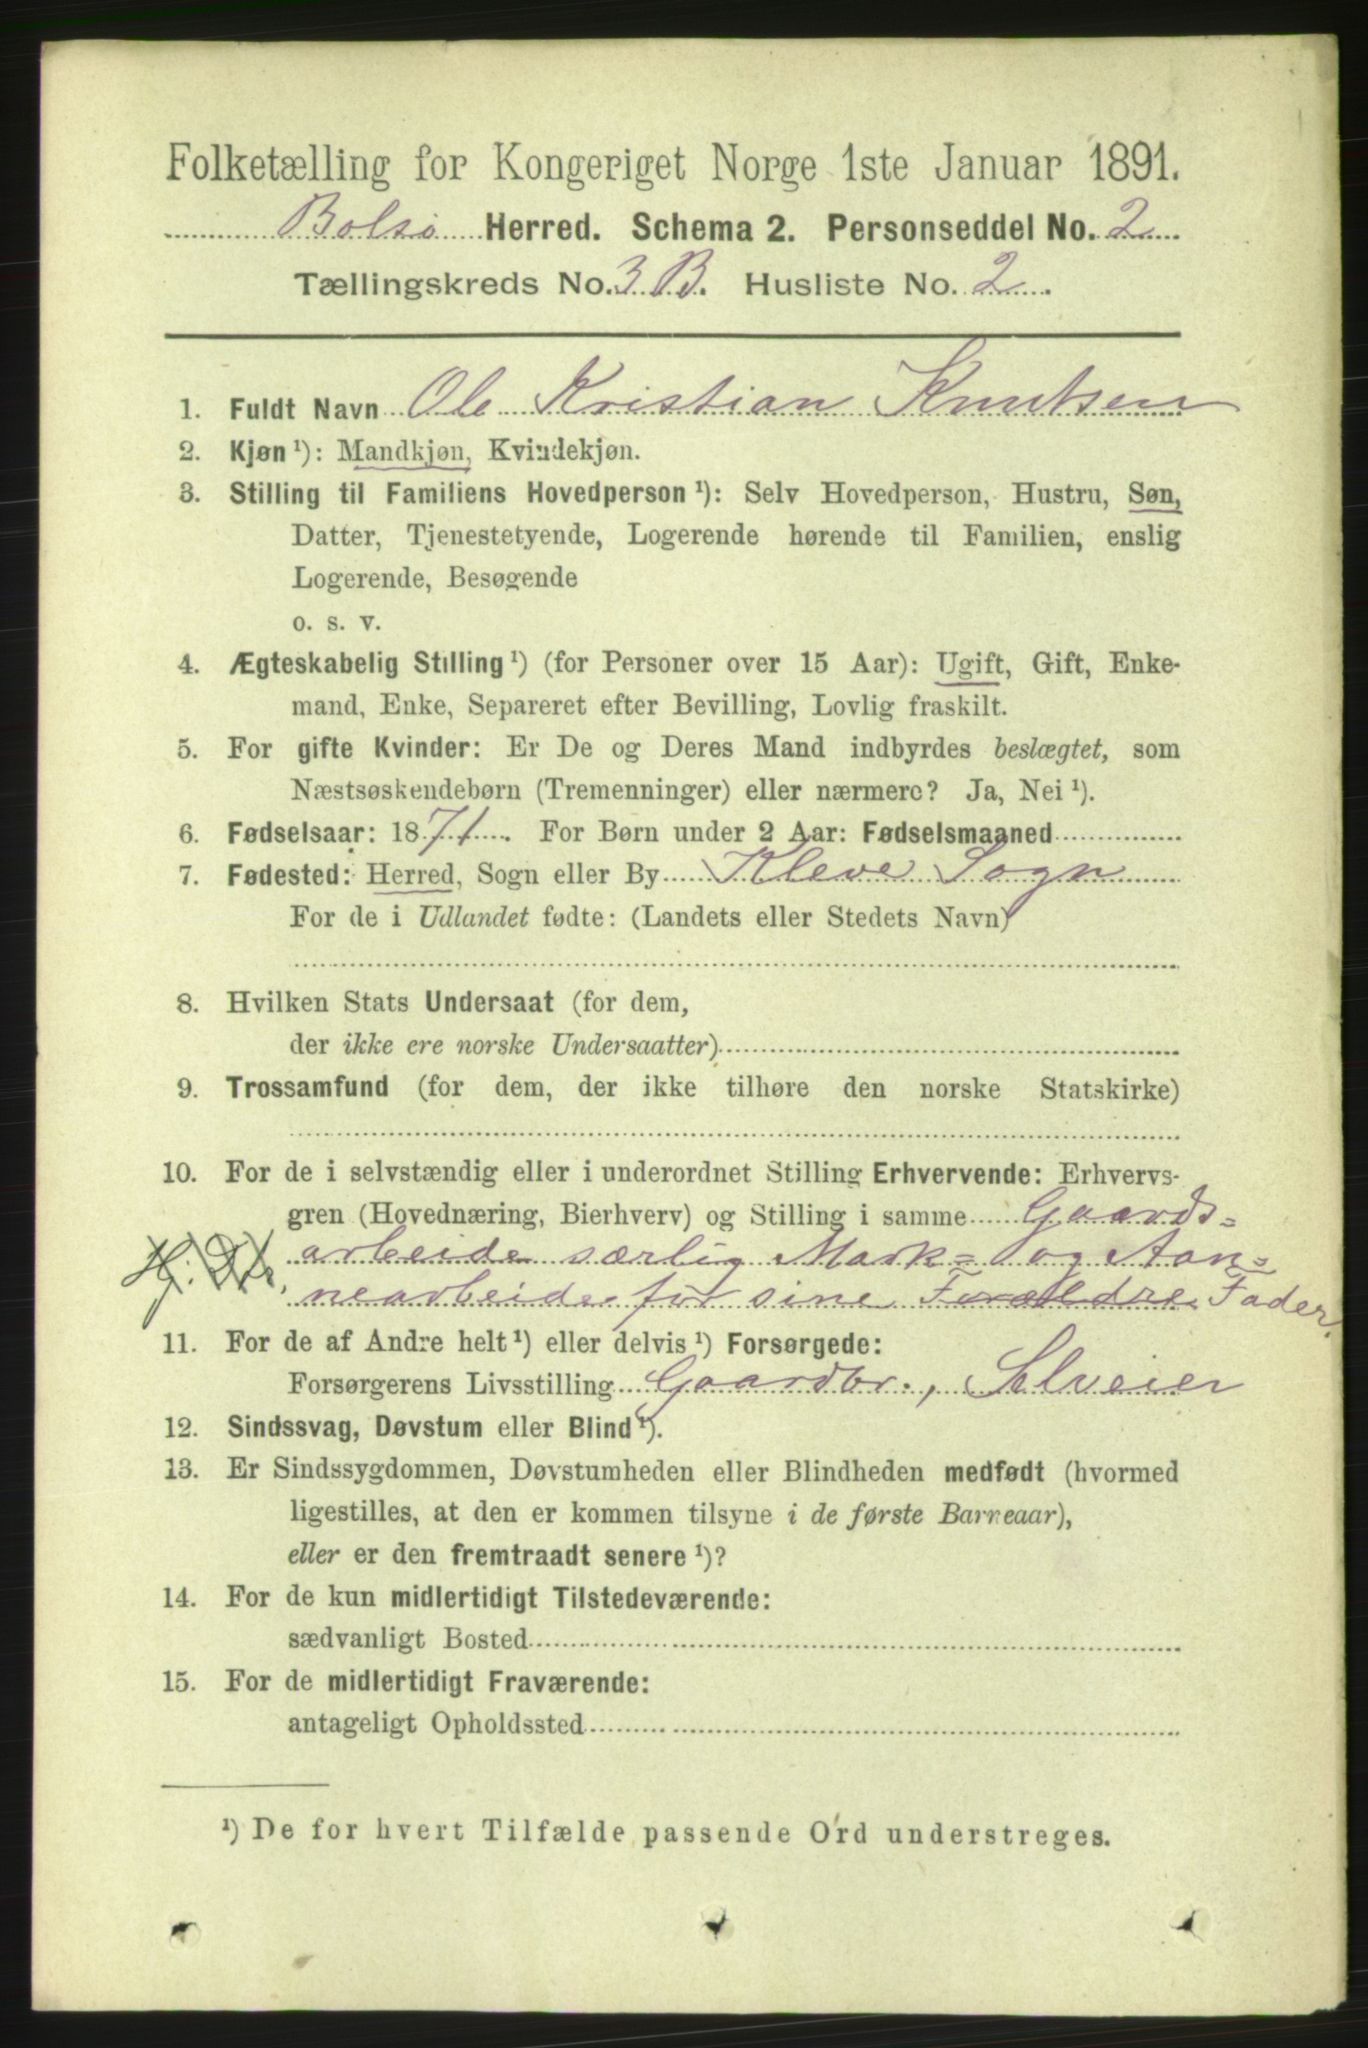 Folketælling for Kongeriget Norge 1ste Januar 1891.
Bolsø Herred. Schema 2. Personseddel No. 2
Tællingskreds No. 3 B. Husliste No. 2
1. Fuldt Navn Ole Kristian Knutsen
2. Kjøn ¹): Mandkjøn, Kvindekjøn.
3. Stilling til Familiens Hovedperson ¹): Selv Hovedperson, Hustru, Søn,
Datter, Tjenestetyende, Logerende hørende til Familien, enslig
Logerende, Besøgende
o. s. v.
4. Ægteskabelig Stilling ¹) (for Personer over 15 Aar): Ugift, Gift, Enke-
mand, Enke, Separeret efter Bevilling, Lovlig fraskilt.
5. For gifte Kvinder: Er De og Deres Mand indbyrdes beslægtet, som
Næstsøskendebørn (Tremenninger) eller nærmere? Ja, Nei ¹).
6. Fødselsaar: 1871. For Børn under 2 Aar: Fødselsmaaned
7. Fødested: Herred, Sogn eller By Kleve Sogn
For de i Udlandet fødte: (Landets eller Stedets Navn)
8. Hvilken Stats Undersaat (for dem,
der ikke ere norske Undersaatter)
9. Trossamfund (for dem, der ikke tilhøre den norske Statskirke)
10. For de i selvstændig eller i underordnet Stilling Erhvervende: Erhvervs-
gren (Hovednæring, Bierhverv) og Stilling i samme Gaards=
arbeide særlig Mark= og Aan=
nearbeide for sine Forældre Fader.
11. For de af Andre helt ¹) eller delvis ¹) Forsørgede:
Forsørgerens Livsstilling Gaardbr., Selveier
12. Sindssvag, Døvstum eller Blind ¹).
13. Er Sindssygdommen, Døvstumheden eller Blindheden medfødt (hvormed
ligestilles, at den er kommen tilsyne i de første Barneaar),
eller er den fremtraadt senere ¹)?
14. For de kun midlertidigt Tilstedeværende:
sædvanligt Bosted
15. For de midlertidigt Fraværende:
antageligt Opholdssted
¹) De for hvert Tilfælde passende Ord understreges.